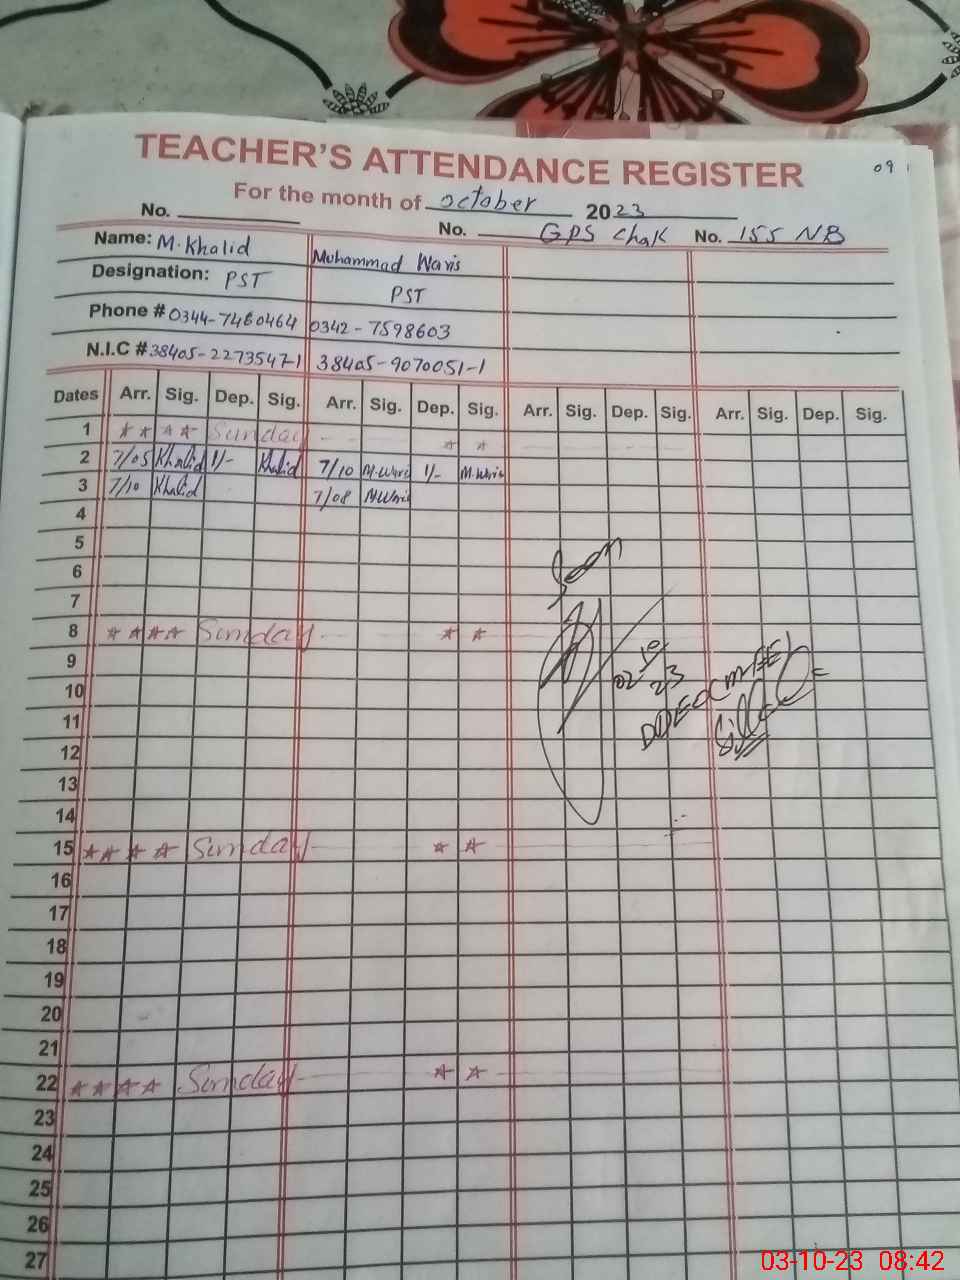 TEACHER'S ATTENDANCE REGISTER
09
For the month of october 2023
No. No. GPS Chak No. 155 NB
Name: M.Khalid Muhammad Waris
Designation: PST PST
Phone # 0344-7460464 0342-7598603
N.I.C # 38405-2273547-1 38405-9070051-1
Dates Arr. Sig. Dep. Sig. Arr. Sig. Dep. Sig. Arr. Sig. Dep. Sig. Arr. Sig. Dep. Sig.
1 Sunday
2 7/05 Khalid 1/- Khalid 7/10 M.Waris 1/- M.Waris
3 7/10 Khalid 7/08 M.Waris
4
5
6
7
Seen
8 Sunday
9
02/10/23
10
DDEO (M-EE)
11
12
13
14
15 Sunday
16
17
18
19
20
21
22 Sunday
23
24
25
26
27
03-10-23 08:42